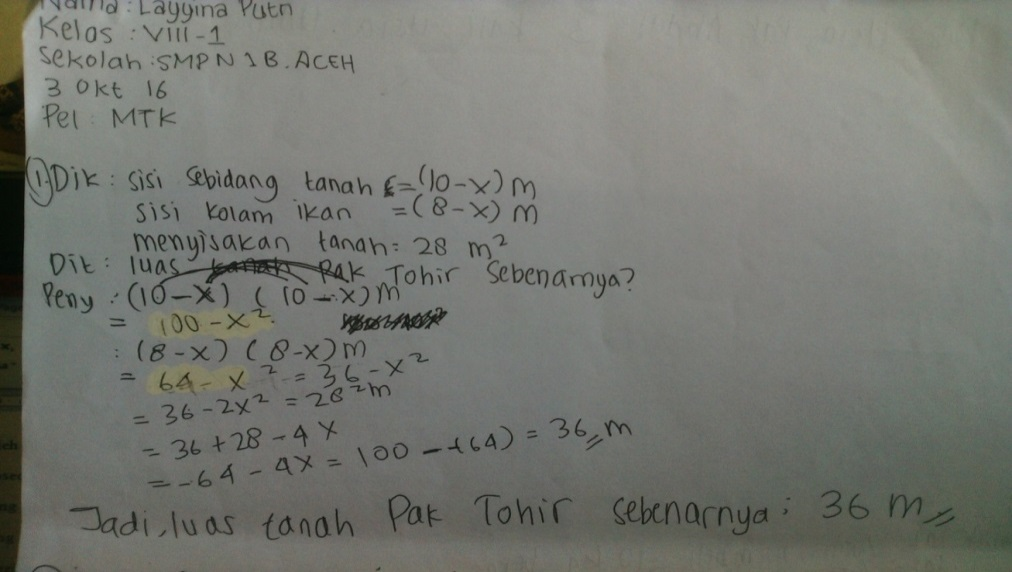 Nama : Layyina Putri
Kelas : VIII-1
Sekolah : SMPN 1 B. ACEH
3 Okt 16
Pel : MTK
1. Dik : sisi sebidang tanah = (10-x) m
sisi kolam ikan = (8-x) m
menyisakan tanah = 28 m²
Dit : luas tanah Pak Tohir sebenarnya?
Peny : (10-x) (10-x)m
= 100-x²
: (8-x) (8-x)m
= 64-x² = 36-x²
= 36-2x² = 28²m
= 36+28-4x
= -64-4x = 100-+64) = 36 m
Jadi, luas tanah Pak Tohir sebenarnya : 36 m